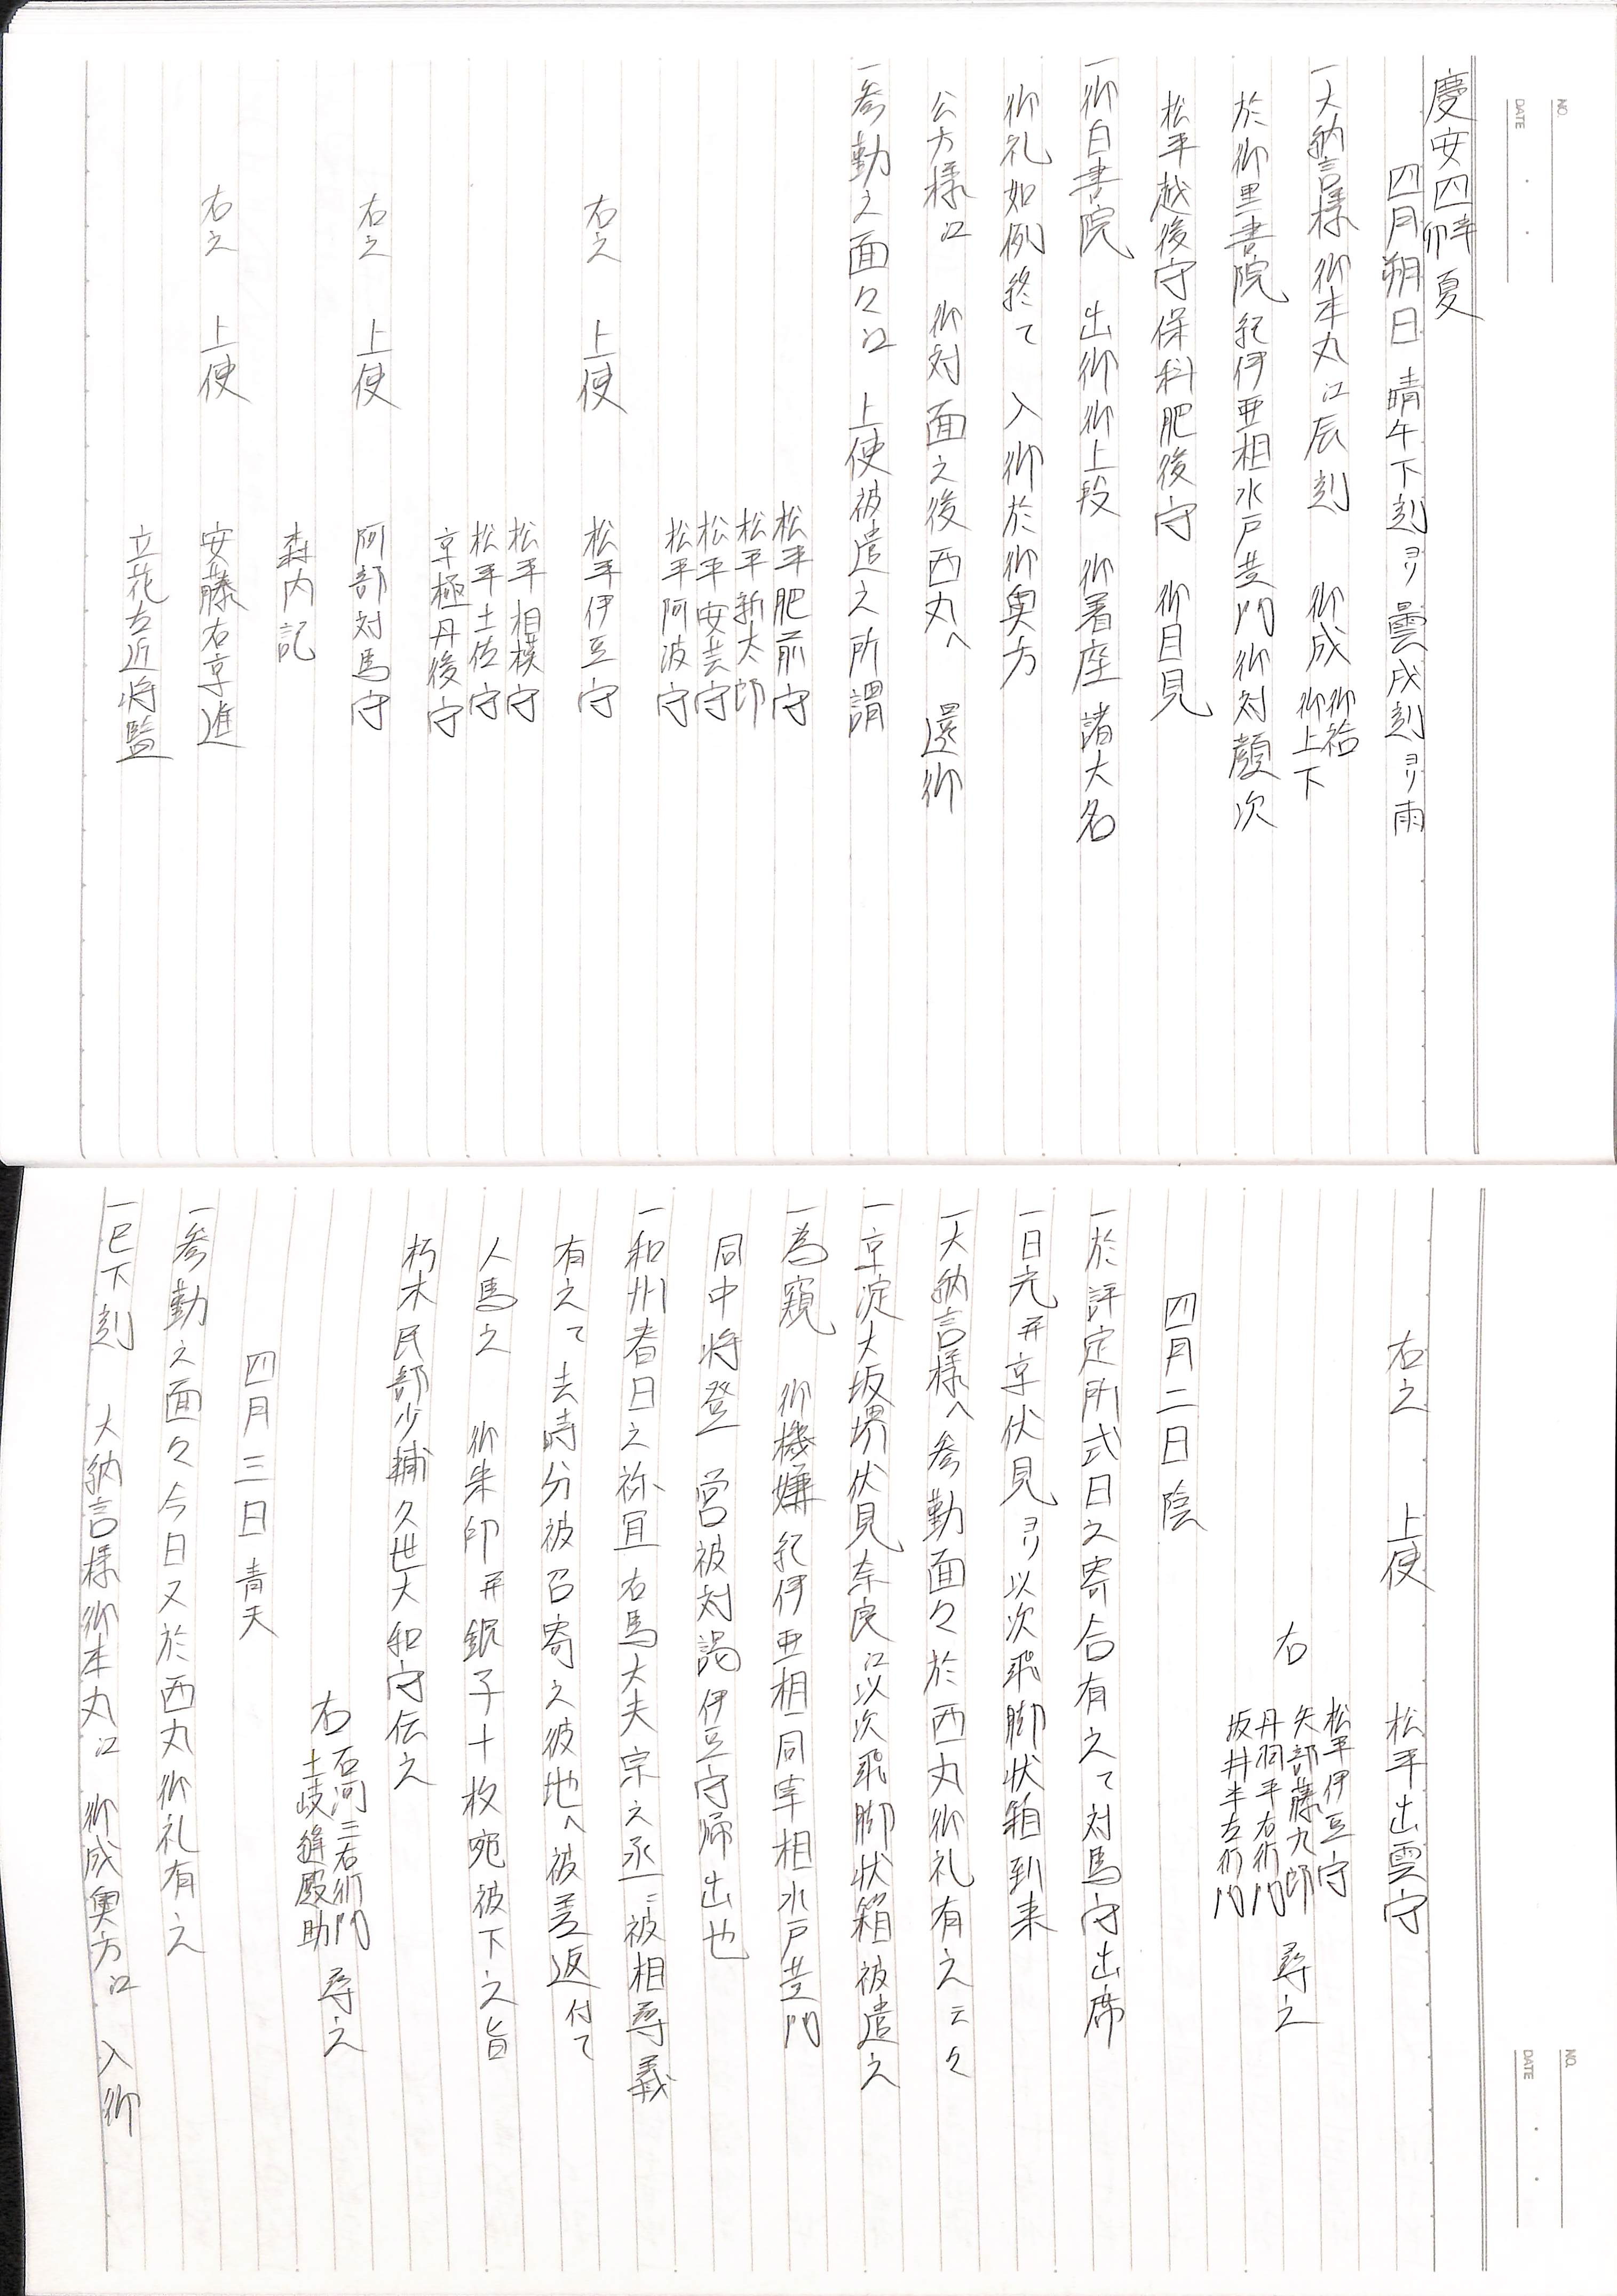 NO.
DATE
慶安四辛卯夏
四月朔日 晴午下刻ヨリ曇戌刻ヨリ雨
一大納言様御本丸江辰刻 御成 御袷御上下
於御黒書院紀伊亜相水戸黄門御対顔次
松平越後守保科肥後守 御目見
一御白書院 出御御上段 御着座諸大名
御礼如例終て 入御於御奥方
公方様江 御対面之後西丸へ 還御
一参勤之面々江 上使被遣之所謂
松平肥前守
松平新太郎
松平安芸守
松平阿波守
右之 上使 松平伊豆守
松平相模守
松平土佐守
京極丹後守
右之 上使 阿部対馬守
森内記
右之 上使 安藤右京進
立花左近将監
NO.
DATE
右之 上使 松平出雲守
右 松平伊豆守
矢部藤九郎
丹羽平右衛門
坂井半左衛門 尋之
四月二日陰
一於評定所式日之寄合有之て対馬守出席
一日光并京伏見ヨリ以次飛脚状箱到来
一大納言様へ参勤面々於西丸御礼有之云々
一京淀大坂堺伏見奈良江以次飛脚状箱被遣之
一為窺 御機嫌紀伊亜相同宰相水戸黄門
同中将登 営被対謁伊豆守帰出也
一和州春日之祢宜右馬大夫宗之丞ニ被相尋義
有之て去時分被召寄之彼地へ被差返付て
人馬之 御朱印并銀子十枚宛被下之旨
朽木民部少輔久世大和守伝之
右 石河三右衛門
土岐縫殿助 尋之
四月三日青天
一参勤之面々今日又於西丸御礼有之
一巳下刻 大納言様御本丸江 御成奥方江 入御